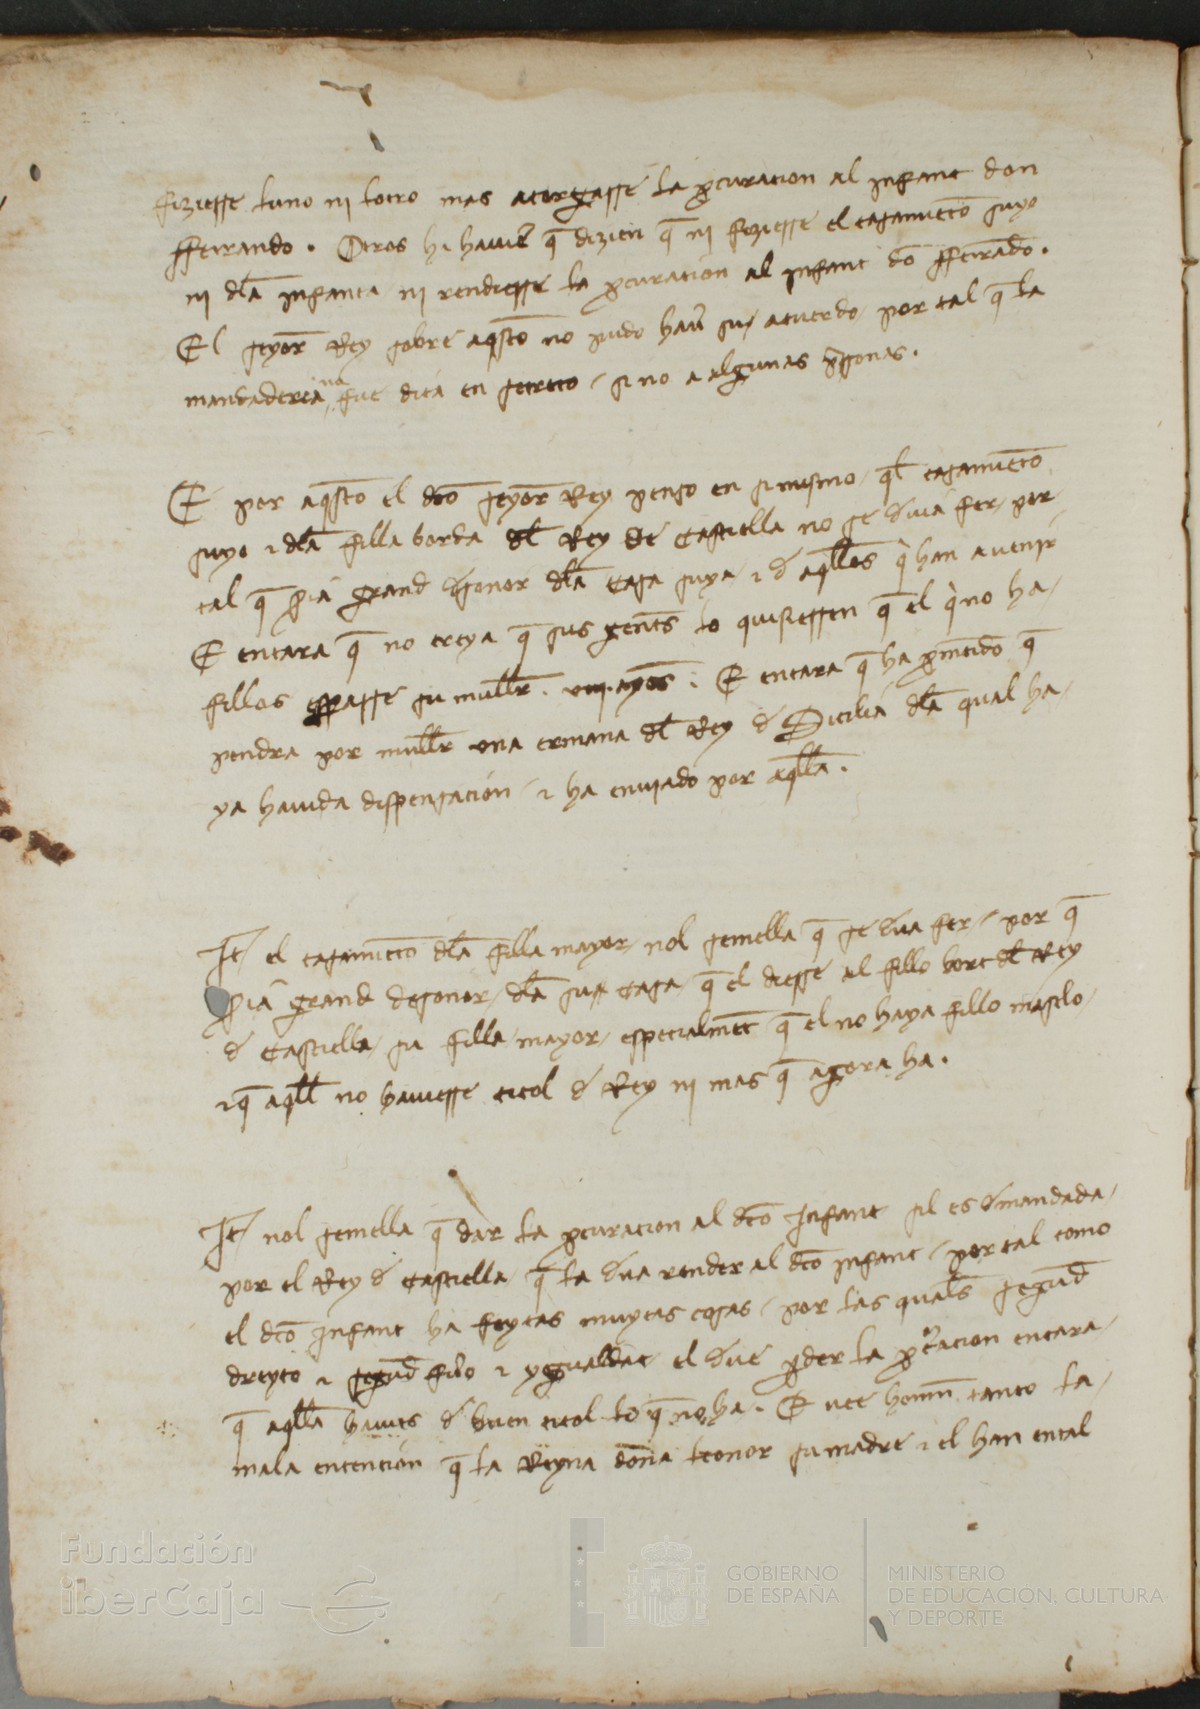 fiziesse luno ni lotro mas atorgasse la p̱curacion al jnfant don
fferrando . Otros hi hauie q̄ dizien q̄ ni fiziesse el casamiēto suyo
ni dla jnfanta ni rendiesse la p̱curacion al jnfant dō fferrādo .
El seyor Rey sobre aq̄sto no pudo hau̾ su acuerdo por tal q̄ la
mandaderia no fue dita en secreto / si no a algunas p̱sonas .
E por aq̄sto el dc̄o seyor Rey penso en si mismo / ql̄ casamiēto
suyo ⁊ dla filla borda dl Rey de Castiella no se deuia fer / por
tal q̄ s̾ia grand desonor dla casa suya / ⁊ d̾ aqllos q̄ han auenir
E encara q̄ no creya q̄ sus gents lo quisiessen q̄ el q̄ no ha /
fillos espasse su mullr̄ . viij . ayos . E encara q̄ ha p̱metido q̄
pendra por mullr̄ vna ermana dl Rey d̾ Sicilia dla qual ha /
ya hauida dispensacion / ⁊ ha enuiado por aqlla .
It̄ el casamiēto dla filla mayor / nol semella q̄ se deua fer / por q̄
s̾ia grand desonor / dla sua casa / q̄ el diesse al fillo bort dl Rey
d̾ Castiella / su filla mayor / especialmēt q̄ el no haya fillo masclo /
⁊ q̄ aqll no hauiesse titol d̾ Rey ni mas q̄ agora ha .
It̄ nol semella q̄ dar la p̱curacion al dc̄o Jnfant sil es demandada /
por el Rey d̾ Castiella q̄ la deua render al dc̄o jnfant / por tal como
el dc̄o Jnfant ha feytas muytas cosas / por las quals segūd
dreyto ⁊ segūd fuero ⁊ ygualdat el deue p̱der la p̱curacion encara /
q̄ aqlla hauies d̾ buen titol lo q̄ no ha . E uee homn̄ tanto la /
mala entencion q̄ la Reyna dona leonor su madre ⁊ el han ental
Fundación
iberCaja
GOBIERNO
DE ESPAÑA
MINISTERIO
DE EDUCACIÓN, CULTURA
Y DEPORTE